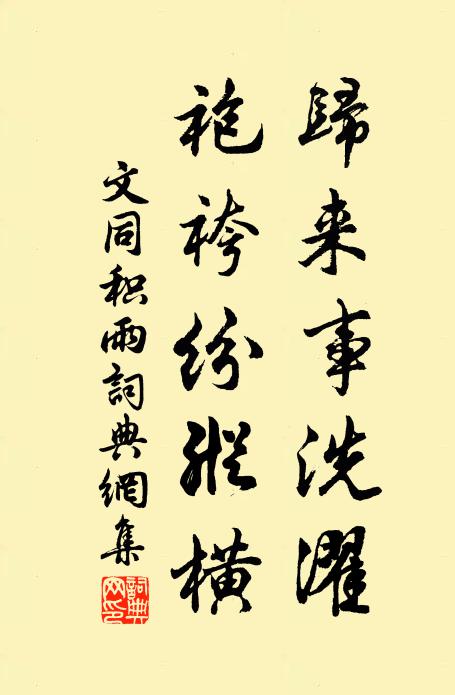 歸来事洗濯
袍袴紛縱橫
文同积雨詞典網集
詞典网印